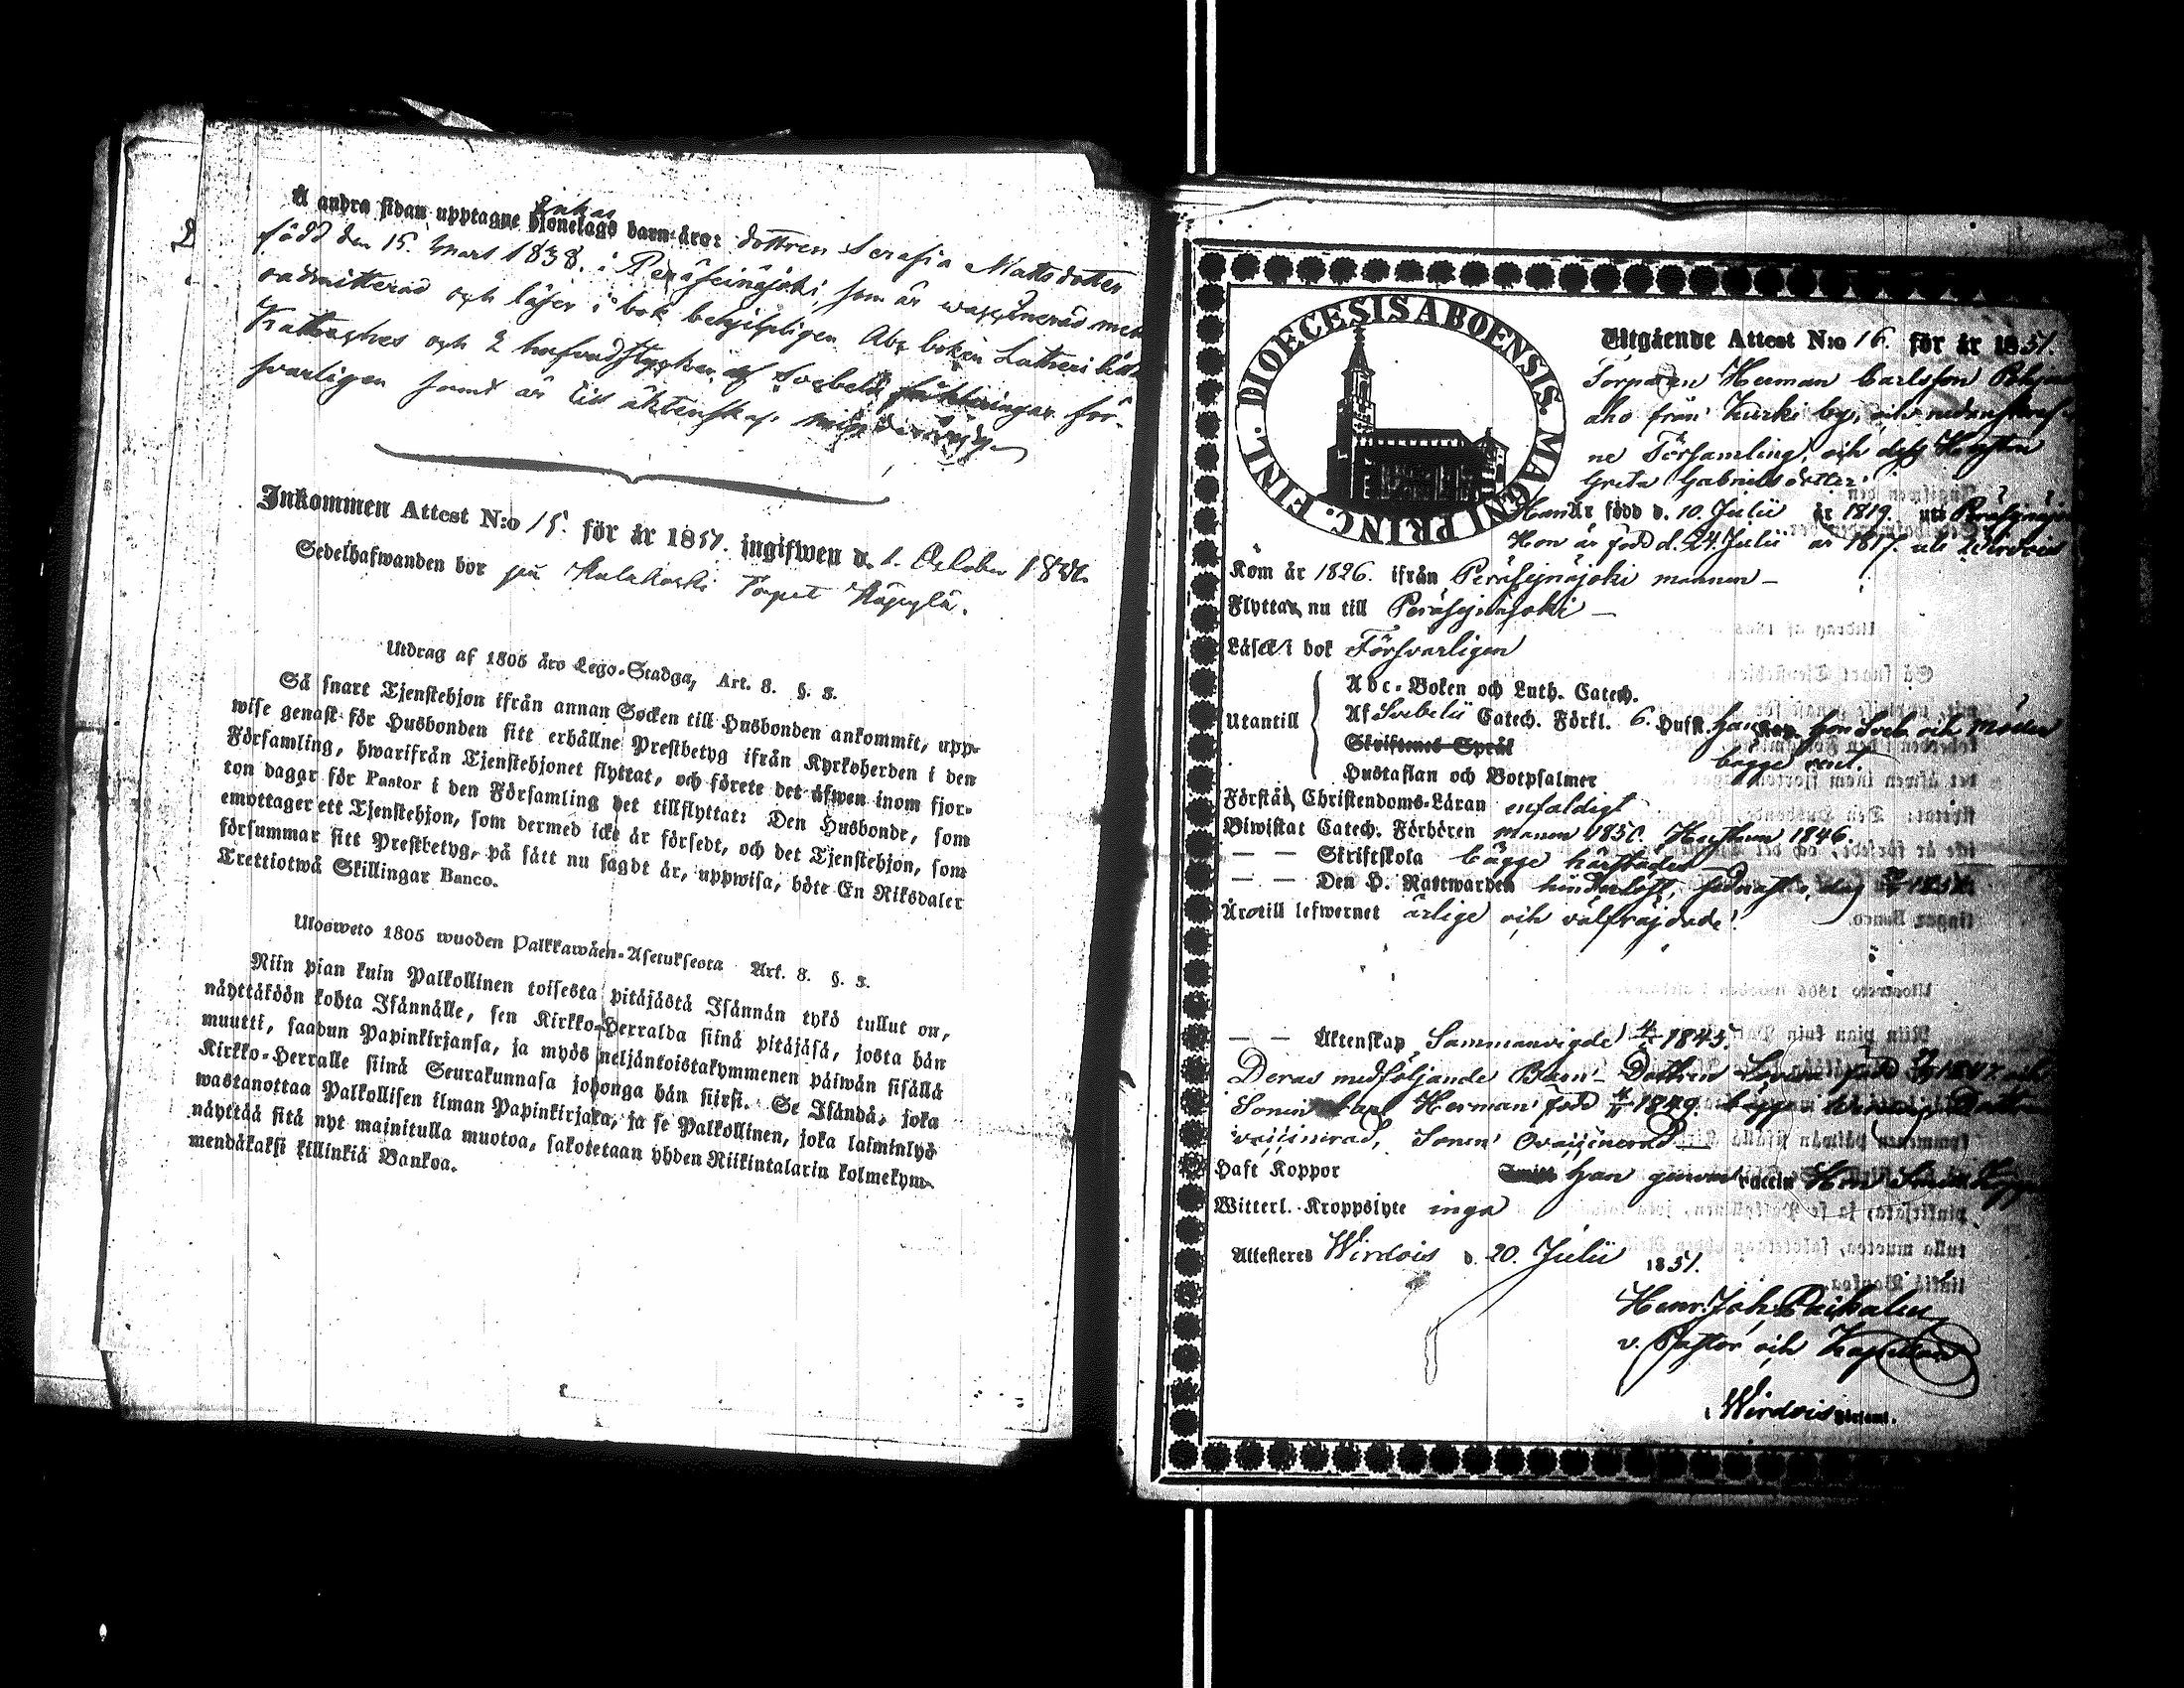 Å andra sidan upptagne Hjonelags barn äro: dottren Serafia Mattsdotter
Enkas
född den 15. Mart 1838. i Peräseinäjoki, som är waccinerad men
oadmitterad och läser i bok behjelpligen Abc boken Lutheri lilla
Kateches och 2 hufvudstycken af Svebelii förklaringar för-
svarligen samt är till äktenskap
Inkommen Attest N:o 15. för år 1851. ingifwen d. 1. October 1851.
Sedelhafwanden bor på Kalakoski Torpet Käpylä.
Utdrag af 1805 års Lego-Stadga, Art. 8. §. 3.
Så snart Tjenstehjon ifrån annan Socken till Husbonden ankommit, upp-
wise genast för Husbonden sitt erhållne Prestbetyg ifrån Kyrkoherden i den
Församling, hwarifrån Tjenstehjonet flyttat, och förete det äfwen inom fjor-
ton dagar för Pastor i den Församling det tillflyttat: Den Husbonde, som
emottager ett Tjenstehjon, som dermed icke är försedt, och det Tjenstehjon, som
försummar sitt Prestbetyg, på sätt nu sagdt är, uppwisa, böte En Riksdaler
Trettiotwå Skillingar Banco.
Ulosweto 1805 wuoden Palkkawäen-Asetuksesta Art. 8. §. 3.
Niin pian kuin Palkollinen toisesta pitäjästä Isännän tykö tullut on,
näyttäköön kohta Isännälle, sen Kirkko-Herralda siinä pitäjäsä, josta hän
muutti, saadun Papinkirjansa, ja myös neljänkoistakymmenen päiwän sisällä
Kirkko-Herralle siinä Seurakunnasa johonga hän siirsi. Se Isändä, joka
wastanottaa Palkollisen ilman Papinkirjata, ja se Palkollinen, joka laiminlyö
näyttää sitä nyt mainitulla muotoa, sakotetaan yhden Riikintalarin kolmekym-
mendäkaksi killinkiä Bankoa.
DIOECESIS ABOENSIS. MAGNI PRINC. FINL.
Utgående Attest N:o 16. för år 1851.
Torparen Herman Carlsson
aho från Kurki by, och
ne Församling, och dess Hustru
Greta Gabrielsdotter.
Han Är född d. 10. Julii år 1819. uti Peräseinäjoki
Hon är född d. 24. Julii år 1817. uti Wirdois
Kom år 1826. ifrån Peräseinäjoki mannen —
Flyttar nu till Peräseinäjoki —
Läser i bok Försvarligen
Abc-Boken och Luth. Catech.
Utantill
Af Svebelii Catech. Förkl. 6. Hufst. han, hon Sveb. och
Skriftenes Språk
bägge
Hustaflan och Botpsalmer
Förstår Christendoms-Läran enfaldigt
Biwistat Catech. Förhören mannen 1850. Hustrun 1846.
— — Skriftskola bägge härstädes
— — Den H. Nattwarden hinderlöst, sednast
Äro till lefwernet ärlige och välfräjdade.
— — Äktenskap Sammanvigde 1845.
Deras medföljande Barn — Dottren Lovisa född 1847. och
Sonen Carl Herman född 1849.
vaccinerad, Sonen Ovaccinerad
Haft Koppor
Witterl. Kroppslyte inga
Attesteres Wirdois d. 20. Julii 1851.
Henr. Joh.
v. Pastor och Kapellan
i Wirdois Församl.